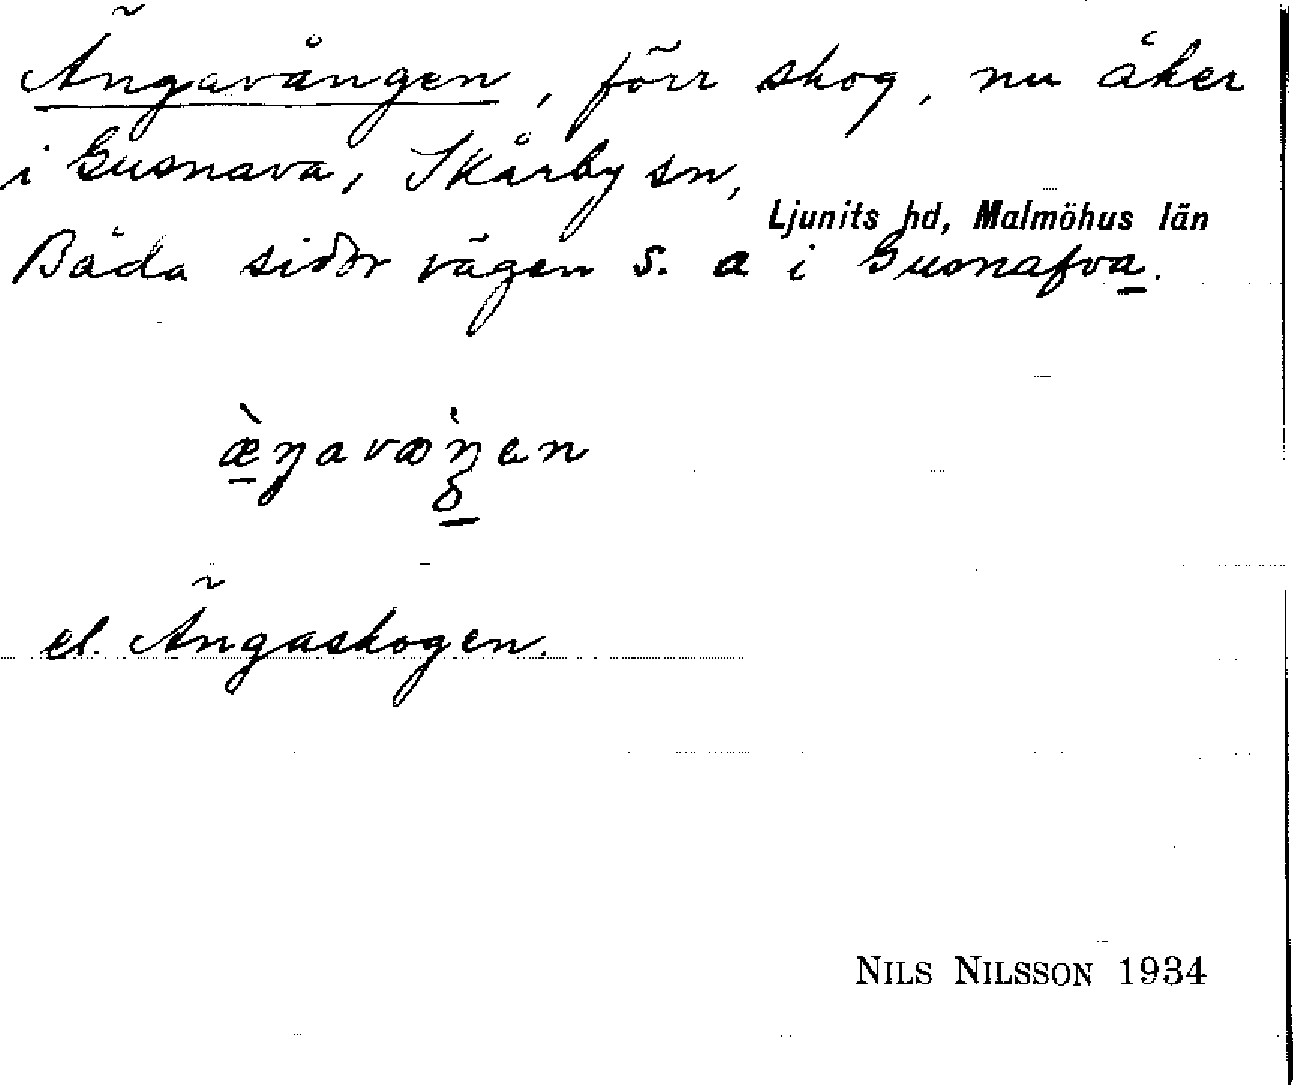 Ängavången, förr skog, nu åker
i Gusnava, Skårby sn,
Ljunits hd, Malmöhus län
Båda sidor vägen s. a i Gusnafva.
æ̀ŋavað̀ŋen
el. Ängaskogen.
NILS NILSSON 1934